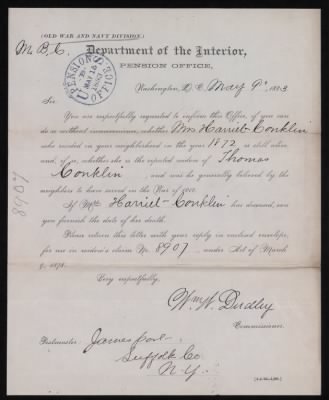 (OLD WAR AND NAVY DIVISION.)
Department of the Interior,
PENSION OFFICE,
Washington, D. C. May 9th, 1883
Sir:
You are respectfully requested to inform this Office, if you can
do so without inconvenience, whether Mrs Harriet Conklin
who resided in your neighborhood in the year 1872, is still alive,
and, if so, whether she is the reputed widow of Thomas
Conklin, and was he generally believed by the
neighbors to have served in the War of 1812.
If Mrs Harriet Conklin has deceased, can
you furnish the date of her death.
Please return this letter with your reply in enclosed envelope,
for use in widow's claim No. 8907, under Act of March
9, 1878.
Very respectfully,
Wm W. Dudley
Commissioner.
Postmaster
Jamesport
Suffolk Co
N. Y.
8907
PENSION OFFICE
MAY 16
1883